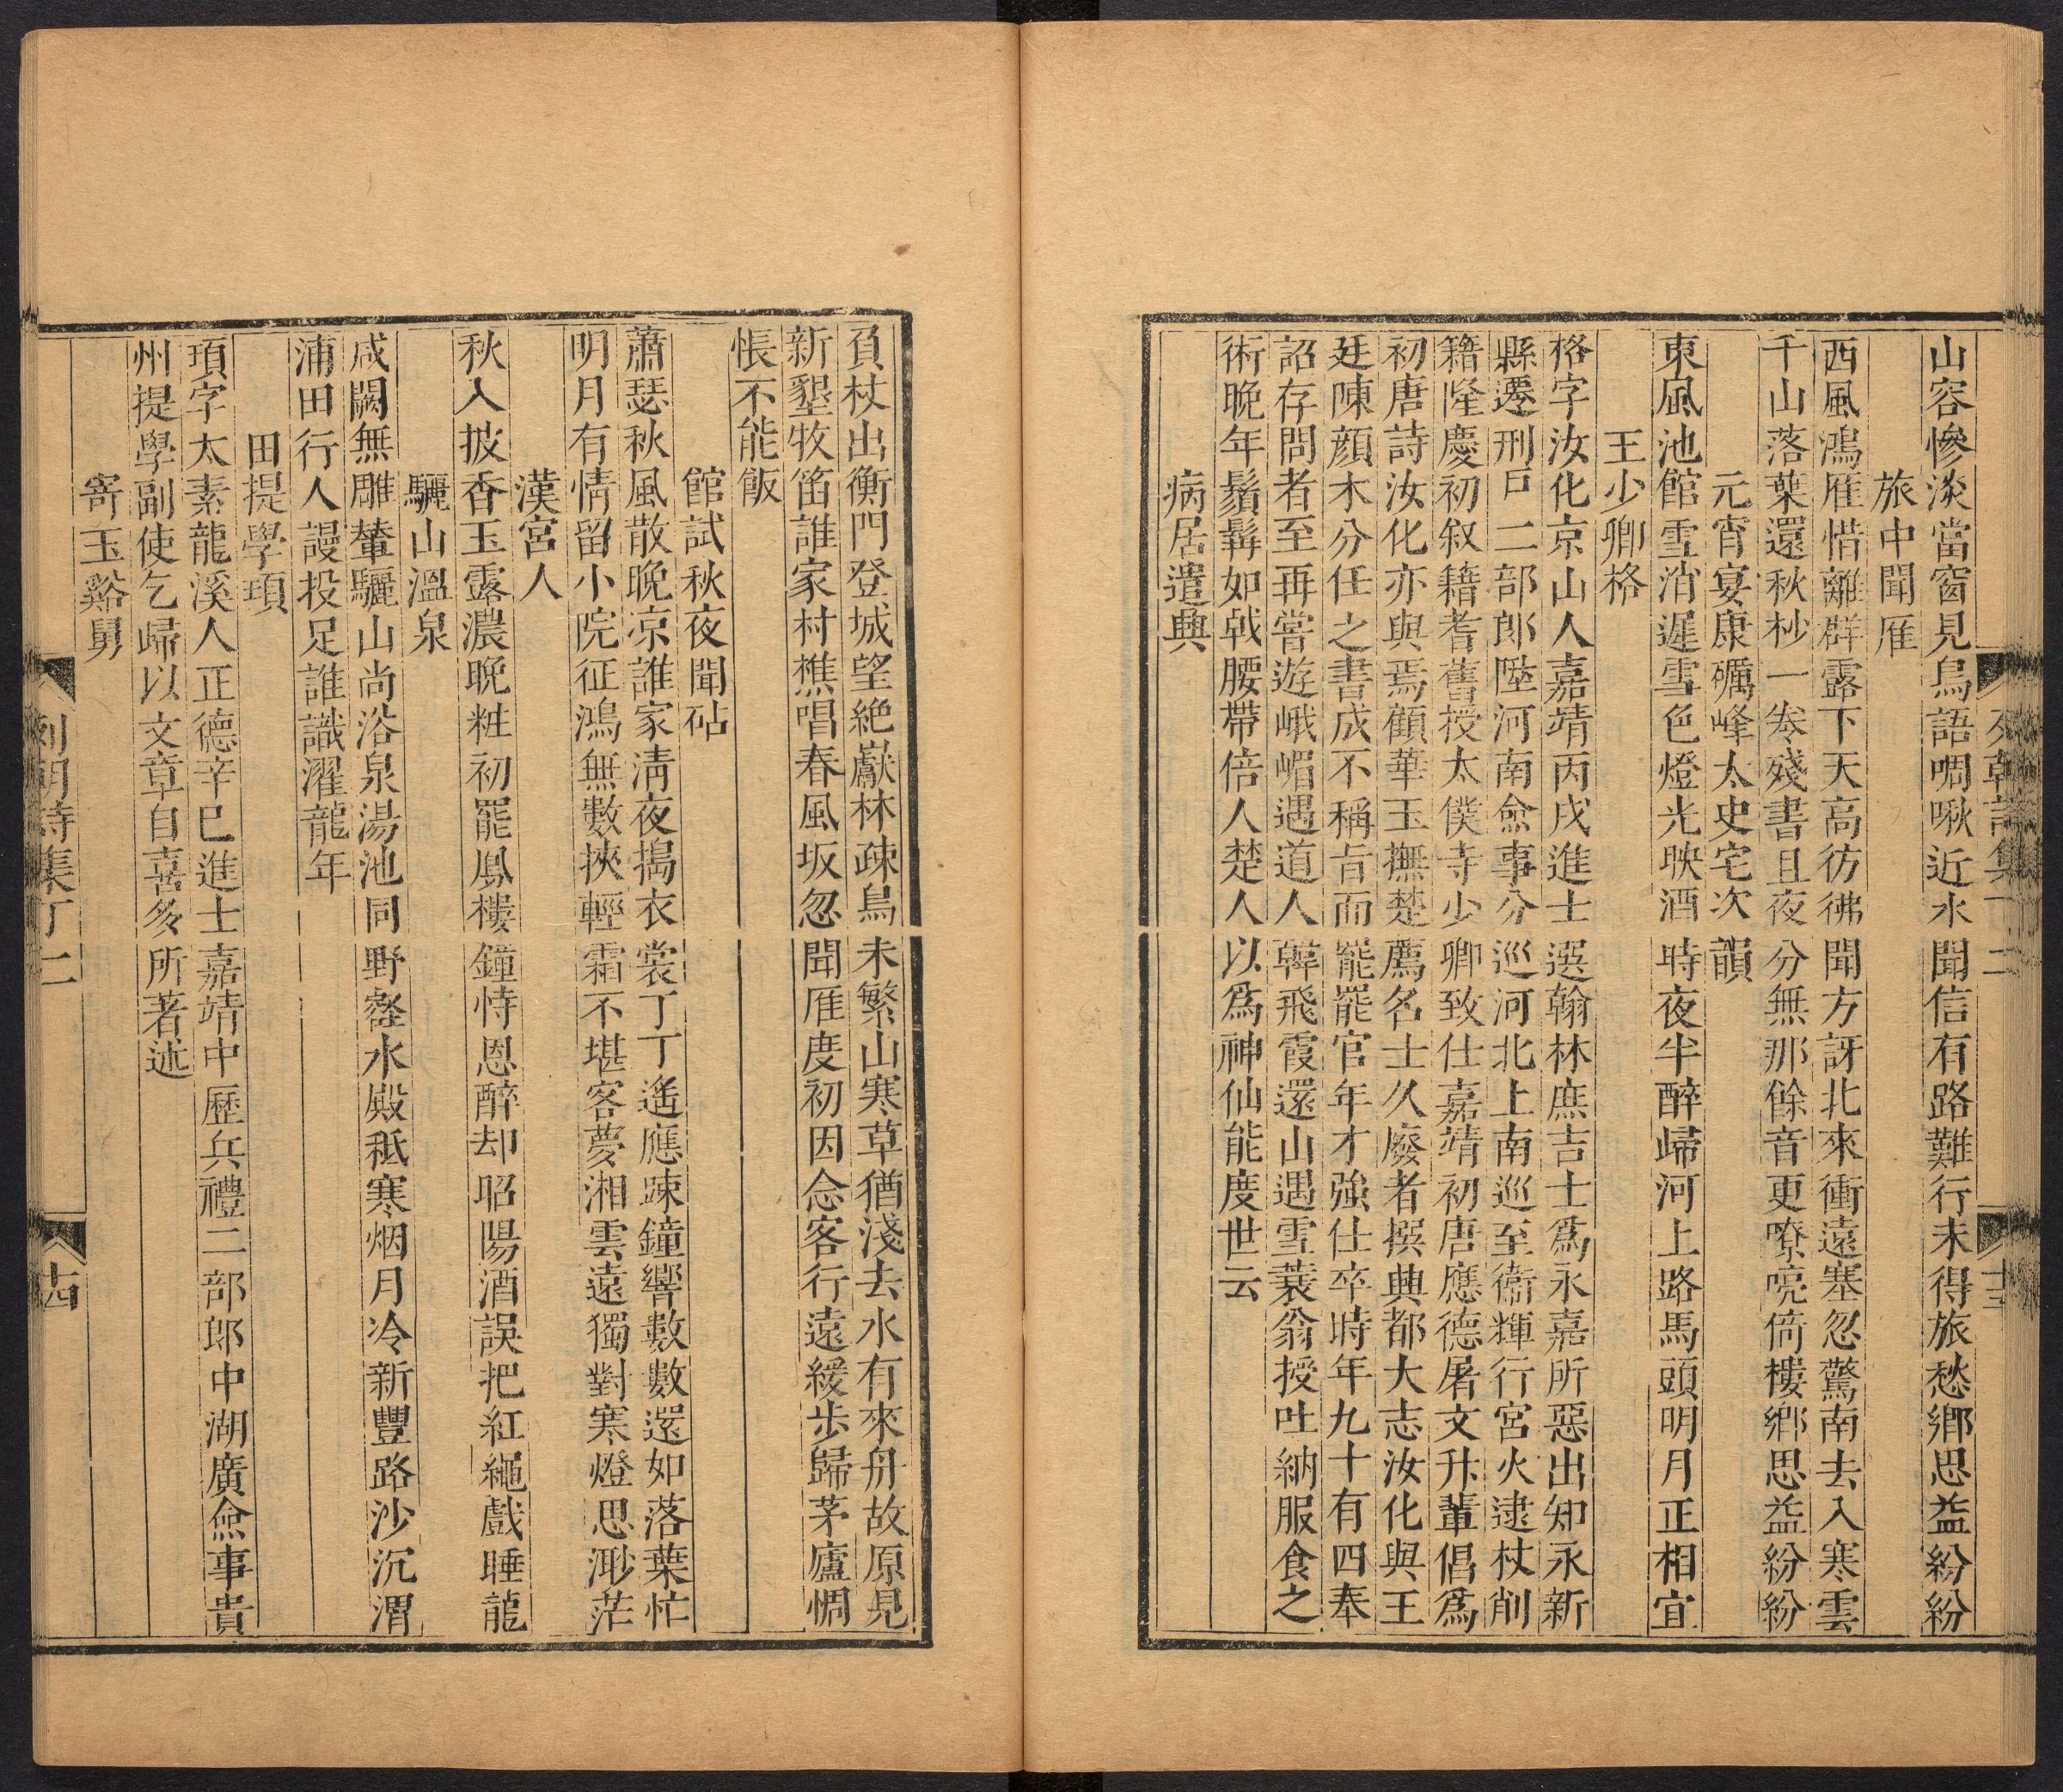 山容慘淡當窗見鳥語啁啾近水聞信有路難行未得旅愁鄉思益紛紛
旅中聞雁
西風鴻雁惜離群露下天高彷彿聞方訝北來衝遠塞忽驚南去入寒雲
千山落葉還秋杪一卷殘書且夜分無那餘音更嘹喨倚樓鄉思益紛紛
元宵宴康礪峰太史宅次韻
東風池館雪消遲雪色燈光映酒時夜半醉歸河上路馬頭明月正相宜
王少卿格
格字汝化京山人嘉靖丙戌進士選翰林庶吉士爲永嘉所惡出知永新
縣遷刑戶二部郎陞河南僉事分巡河北上南巡至衞輝行宮火逮杖削
籍隆慶初叙籍耆舊授太僕寺少卿致仕嘉靖初唐應德屠文升輩倡爲
初唐詩汝化亦與焉顧華玉撫楚薦名士久廢者撰興都大志汝化與王
廷陳顏木分任之書成不稱旨而罷罷官年才強仕卒時年九十有四奉
詔存問者至再嘗遊峨嵋遇道人韓飛霞還山遇雪蓑翁授吐納服食之
術晚年鬚髯如戟腰帶倍人楚人以爲神仙能度世云
病居遣興
負杖出衡門登城望絶巘林疎鳥未繁山寒草猶淺去水有來舟故原見
新墾牧笛誰家村樵唱春風坂忽聞雁度初因念客行遠緩步歸茅廬惆
悵不能飯
館試秋夜聞砧
蕭瑟秋風散晚凉誰家淸夜搗衣裳丁丁遙應踈鐘響數數還如落葉忙
明月有情留小院征鴻無數挾輕霜不堪客夢湘雲遠獨對寒燈思渺茫
漢宮人
秋入披香玉露濃晚粧初罷鳳樓鐘恃恩醉却昭陽酒誤把紅繩戲睡龍
驪山溫泉
咸闕無雕輦驪山尚浴泉湯池同野壑水殿秪寒烟月冷新豐路沙沉渭
浦田行人謾投足誰識濯龍年
田提學頊
頊字太素龍溪人正德辛巳進士嘉靖中歷兵禮二部郎中湖廣僉事貴
州提學副使乞歸以文章自喜多所著述
寄玉谿舅
列朝詩集丁二
十四